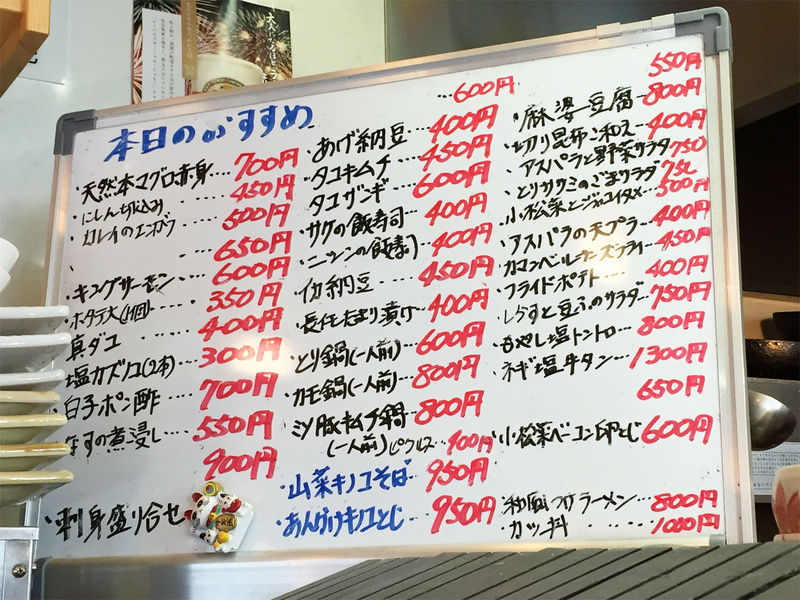 本日のおすすめ
・天然本マグロ赤身‥‥700円
・にしん切込み‥‥450円
・カレイのエンガワ 500円
・ 650円
・キングサーモン‥‥600円
・ホタテ大(1個)‥‥350円
・真ダコ‥‥400円
・塩カズノコ(2本)‥‥300円
・白子ポン酢‥‥700円
・なすの煮浸し‥‥550円
900円
・刺身盛り合せ
‥‥600円
・あげ納豆‥‥400円
・タコキムチ‥‥450円
・タコザンギ‥‥600円
・サケの飯寿司‥‥400円
・ニシンの飯寿司‥‥400円
・イカ納豆‥‥450円
・長イモたまり漬け‥‥400円
・とり鍋(一人前)‥‥600円
・カモ鍋(一人前)‥‥800円
・ミソ豚キムチ鍋‥‥800円
(一人前)ピクルス‥‥400円
・山菜キノコそば‥‥950円
・あんかけキノコとじ‥‥950円
550円
・麻婆豆腐‥‥800円
・切り昆布和え‥‥400円
・アスパラと野菜サラダ 750
・とりササミのごまサラダ 750
・小松菜とジャコイタメ‥‥500円
・アスパラの天プラ‥‥400円
・カマンベールチーズフライ‥‥450円
・フライドポテト‥‥400円
・しらすと豆ふのサラダ‥‥750円
・もやし塩トントロ‥‥800円
・ネギ塩牛タン‥‥1300円
650円
・小松菜ベーコン卵とじ 600円
・和風つけラーメン‥‥800円
・カツ丼‥‥1000円